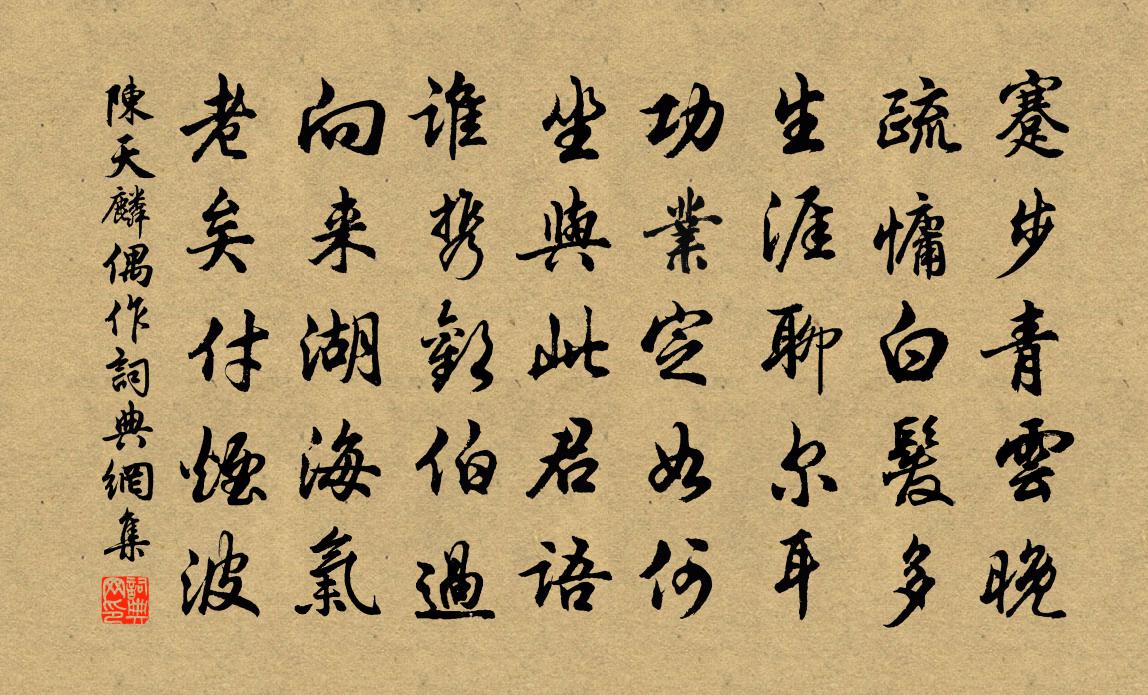 蹇步青雲晚
疏慵白髮多
生涯聊尔耳
功業定如何
坐與此君語
誰携歡伯過
向来湖海氣
老矣付煙波
陳天麟偶作詞典網集
詞典网印